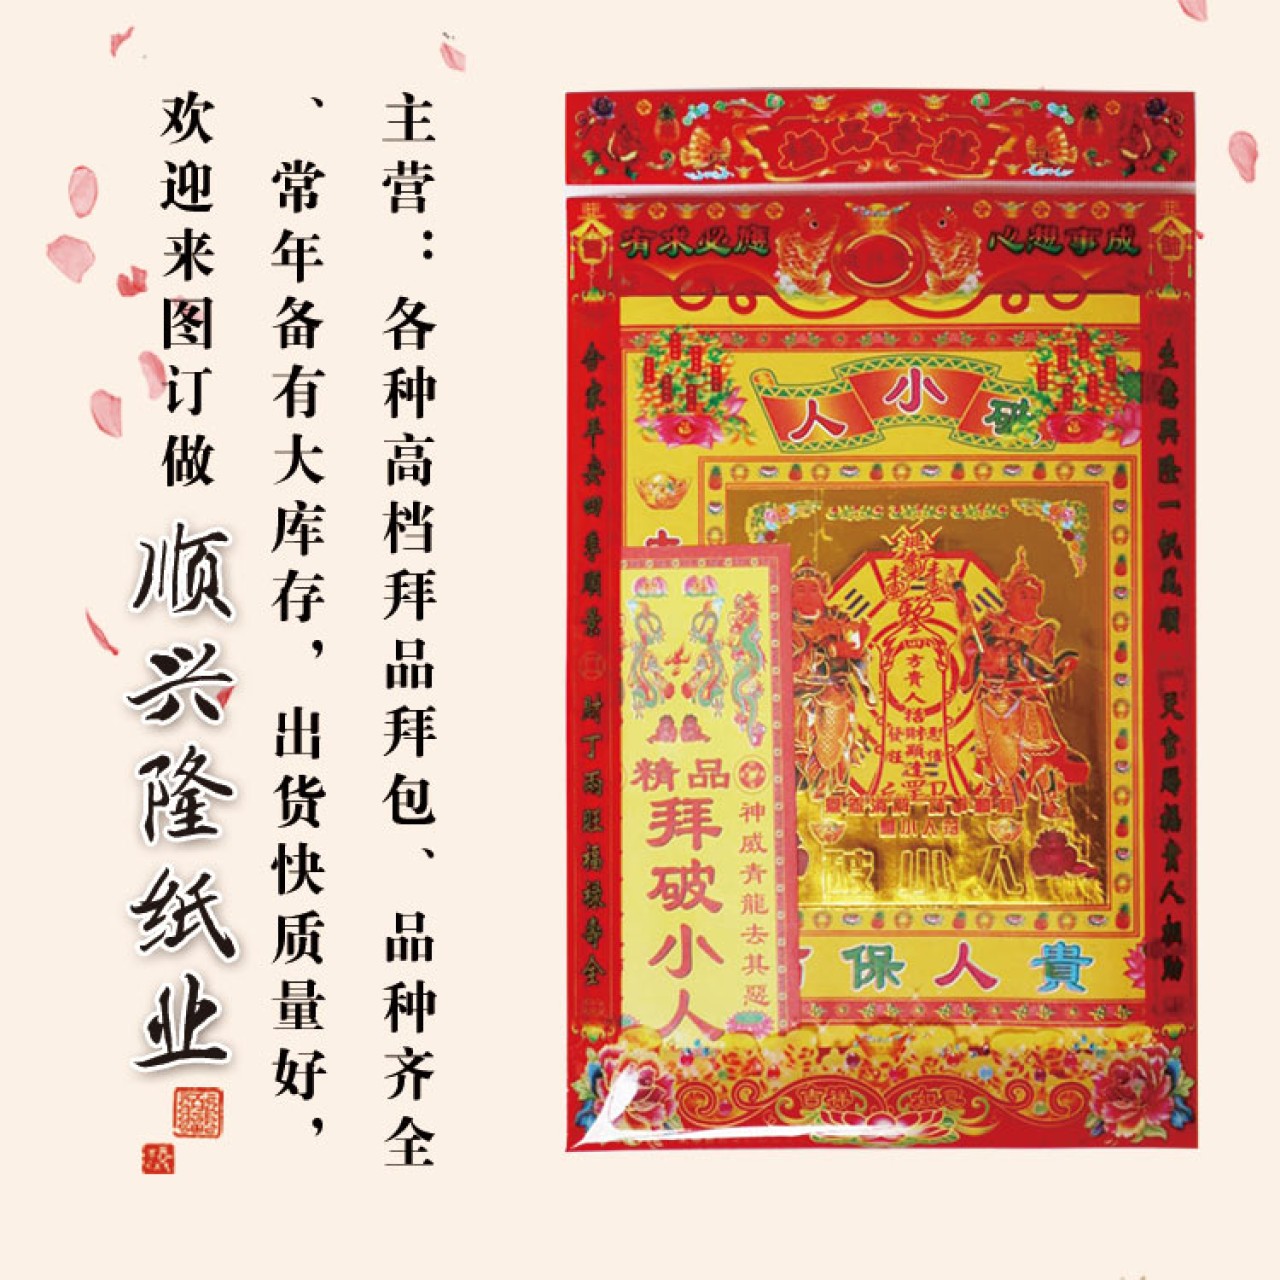 主营：各种高档拜品拜包、品种齐全
、常年备有大库存，出货快质量好，
欢迎来图订做
顺兴隆纸业
有求必應
心想事成
合家平安四季順景
財丁兩旺福祿壽全
生意興隆一帆風順
貴人相助
破小人
四方貴人
精品
拜破小人
神威青龍去其惡
破小人
貴人保
吉祥如意